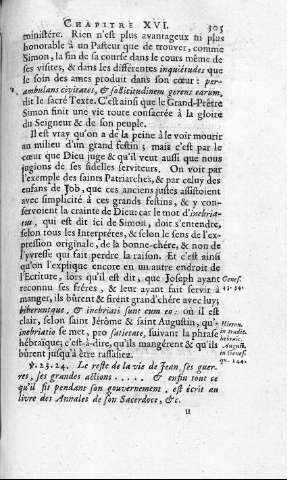 CHAPITRE XVI. 305
ministére. Rien n'est plus avantageux ni plus
honorable à un Pasteur que de trouver, comme
Simon, la fin de sa course dans le cours même de
ses visites, & dans les différentes inquiétudes que
le soin des ames produit dans son cœur: per-
ambulans civitates, & sollicitudinem gerens earum,
dit le sacré Texte. C'est ainsi que le Grand-Prêtre
Simon finit une vie toute consacrée à la gloire
du Seigneur & de son peuple.
Il est vray qu'on a de la peine à le voir mourir
au milieu d'un grand festin; mais c'est par le
cœur que Dieu juge & qu'il veut aussi que nous
jugions de ses fidelles serviteurs. On voit par
l'exemple des saints Patriarches, & par celuy des
enfans de Job, que ces anciens justes assistoient
avec simplicité à ces grands festins, & y con-
servoient la crainte de Dieu: car le mot d'inebria-
tus, qui est dit ici de Simon, doit s'entendre,
selon tous les Interprétes, & selon le sens de l'ex-
pression originale, de la bonne-chére, & non de
l'yvresse qui fait perdre la raison. Et c'est ainsi
qu'on l'explique encore en un autre endroit de
l'Ecriture, lors qu'il est dit, que Joseph ayant
reconnu ses fréres, & leur ayant fait servir à
manger, ils bûrent & firent grand'chére avec luy;
biberuntque, & inebriati sunt cum eo: où il est
clair, selon saint Jérôme & saint Augustin, qu'-
inebriatio se met, pro satietate, suivant la phrase
hébraïque; c'est-à-dire, qu'ils mangérent & qu'ils
bûrent jusqu'à être rassasiez.
Genes.
43. 34.
Hieron.
in tradit.
hebraic.
August.
in Genes.
qu. 144.
℣. 23. 24. Le reste de la vie de Jean, ses guer-
res, ses grandes actions . . . . & enfin tout ce
qu'il fit pendant son gouvernement . est écrit au
livre des Annales de son Sacerdoce, &c.